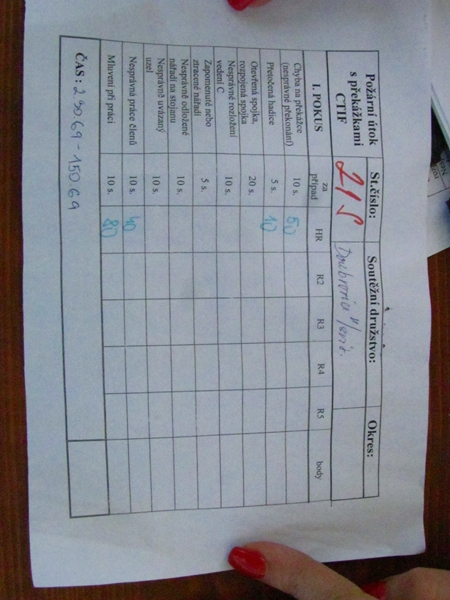 Požární útok
s překážkami
CTIF
St.číslo:
Soutěžní družstvo:
Okres:
215
I. POKUS
za
případ
HR
R2
R3
R4
R5
body
Chyba na překážce
(nesprávné překonání)
10 s.
50
Přetočená hadice
5 s.
10
Otevřená spojka,
rozpojená spojka
20 s.
Nesprávné rozložení
vedení C
10 s.
Zapomenuté nebo
ztracené nářadí
5 s.
Nesprávně odložené
nářadí na stojanu
10 s.
Nesprávně uvázaný
uzel
10 s.
Nesprávná práce členů
10 s.
40
Mluvení při práci
10 s.
80
ČAS: 2
69 - 150 69